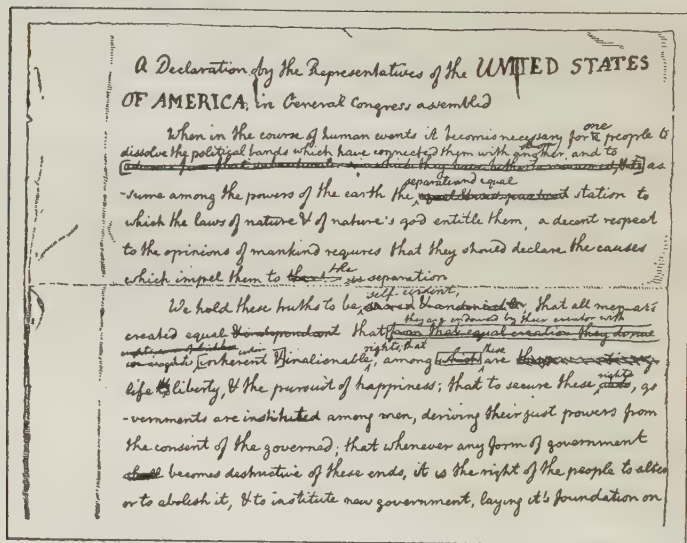 A Declaration by the Representatives of the UNITED STATES
OF AMERICA, in General Congress assembled
When in the course of human events it becomes necessary for one people to
dissolve the political bands which have connected them with another, and to as
-sume among the powers of the earth the separate and equal station to
which the laws of nature & of nature's god entitle them, a decent respect
to the opinions of mankind requires that they should declare the causes
which impel them to the separation
We hold these truths to be self-evident, that all men are
created equal that they are endowed by their creator with
inherent & inalienable rights, that among these are
life liberty, & the pursuit of happiness; that to secure these rights, go
-vernments are instituted among men, deriving their just powers from
the consent of the governed; that whenever any form of government
becomes destructive of these ends, it is the right of the people to alter
or to abolish it, & to institute new government, laying it's foundation on